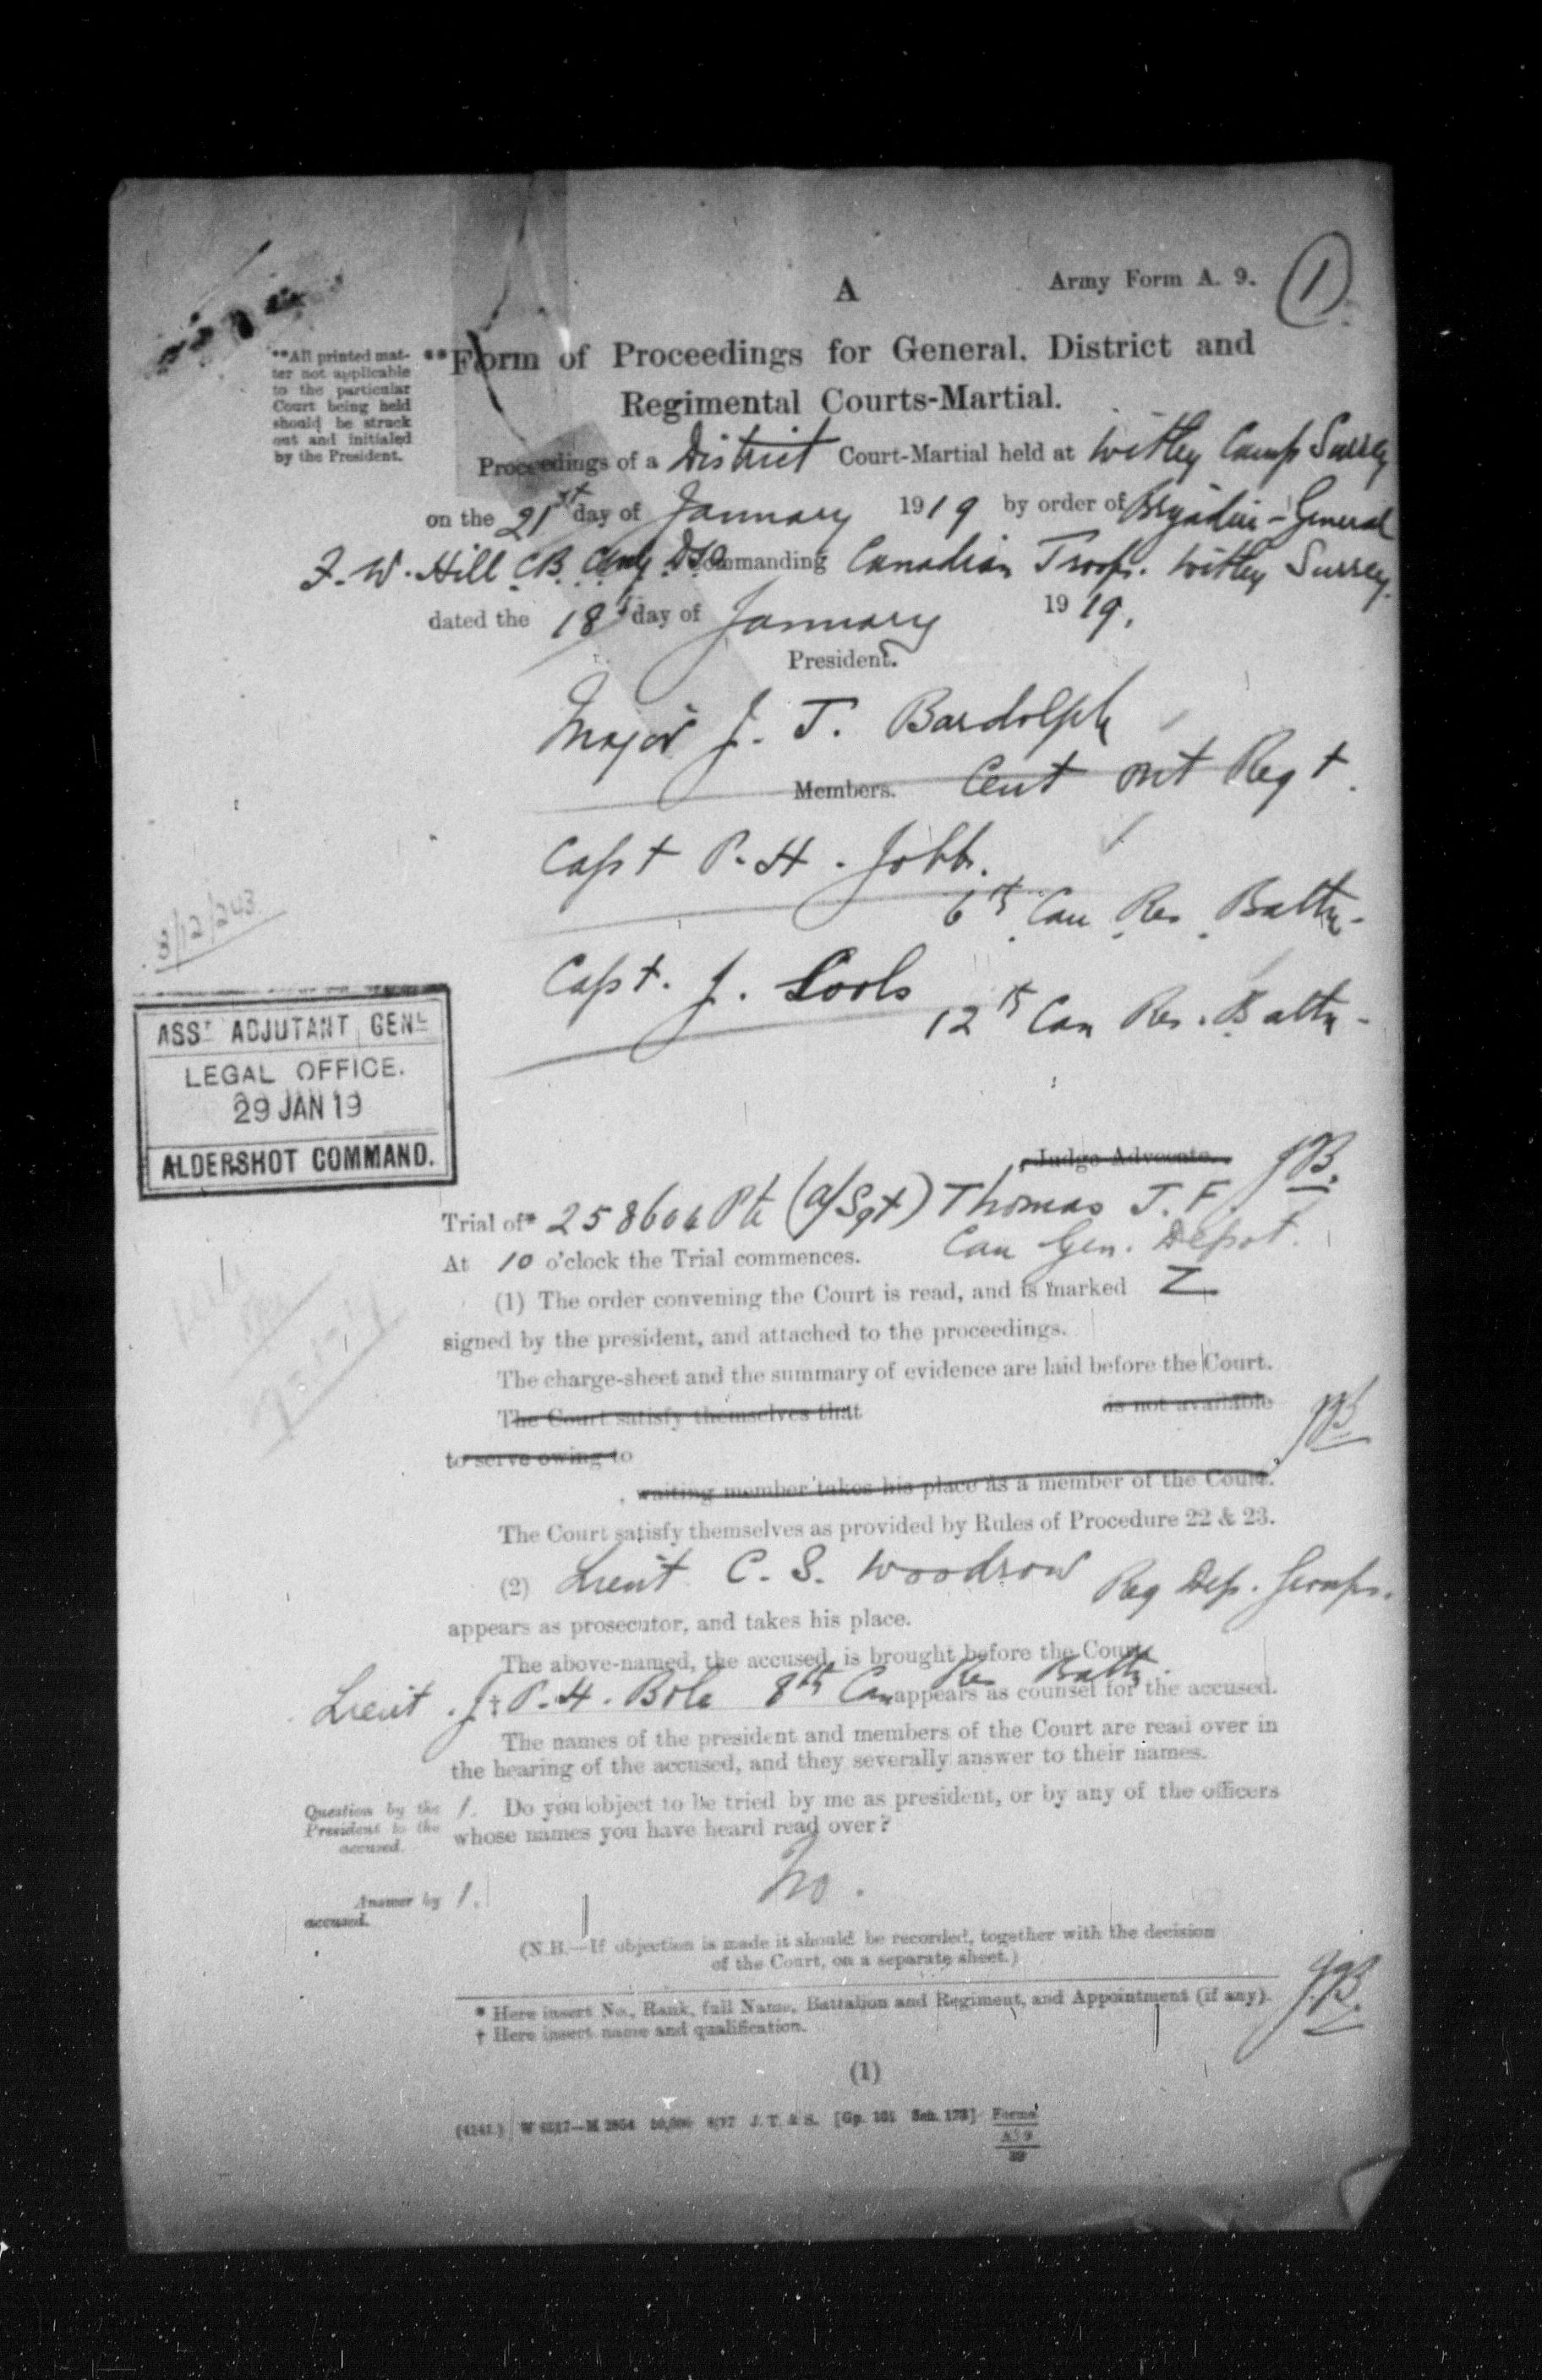 A
Army Form A. 9.
1
**All printed mat-
ter not applicable
to the particular
Court being held
should be struck
out and initialed
by the President.
**Form of Proceedings for General, District and
Regimental Courts-Martial.
Proceedings of a District Court-Martial held at Witley Camp Surrey
on the 21st day of January 1919 by order of Brigadier-General
F. W. Hill CB. CMG DSO Commanding Canadian Troops. Witley Surrey.
dated the 18th day of January 1919.
President.
Major J. T. Bardolph
Members. Cent Ont Regt.
Capt P. H. Jobb.
6th Can Res Battn-
Capt. J.
12th Can Res. Battn-
8/12/243
ASST ADJUTANT GENL
LEGAL OFFICE.
29 JAN 19
ALDERSHOT COMMAND.
Judge Advocate. JB.
Trial of* 258606 Pte (a/Sgt) Thomas J. F.
Can Gen. Depot.
At 10 o'clock the Trial commences.
(1) The order convening the Court is read, and is marked Z
signed by the president, and attached to the proceedings.
The charge-sheet and the summary of evidence are laid before the Court.
The Court satisfy themselves that is not available
to serve owing to JB
, waiting member takes his place as a member of the Court.
The Court satisfy themselves as provided by Rules of Procedure 22 & 23.
(2) Lieut C. S. Woodrow Reg Dep.
appears as prosecutor, and takes his place.
The above-named, the accused, is brought before the Court.
Lieut. J. P. H. Bole 8th Can Res Battn. appears as counsel for the accused.
The names of the president and members of the Court are read over in
the hearing of the accused, and they severally answer to their names.
Question by the
President to the
accused.
1. Do you object to be tried by me as president, or by any of the officers
whose names you have heard read over?
Answer by
accused.
1. No.
(N.B.—If objection is made it should be recorded, together with the decision
of the Court, on a separate sheet.)
* Here insert No., Rank, full Name, Battalion and Regiment, and Appointment (if any).
† Here insert name and qualification.
J.B.
(1)
(4141.) 8/17 J. T. & S. [Gp. 101 Sch. 173] Forms
A. 9